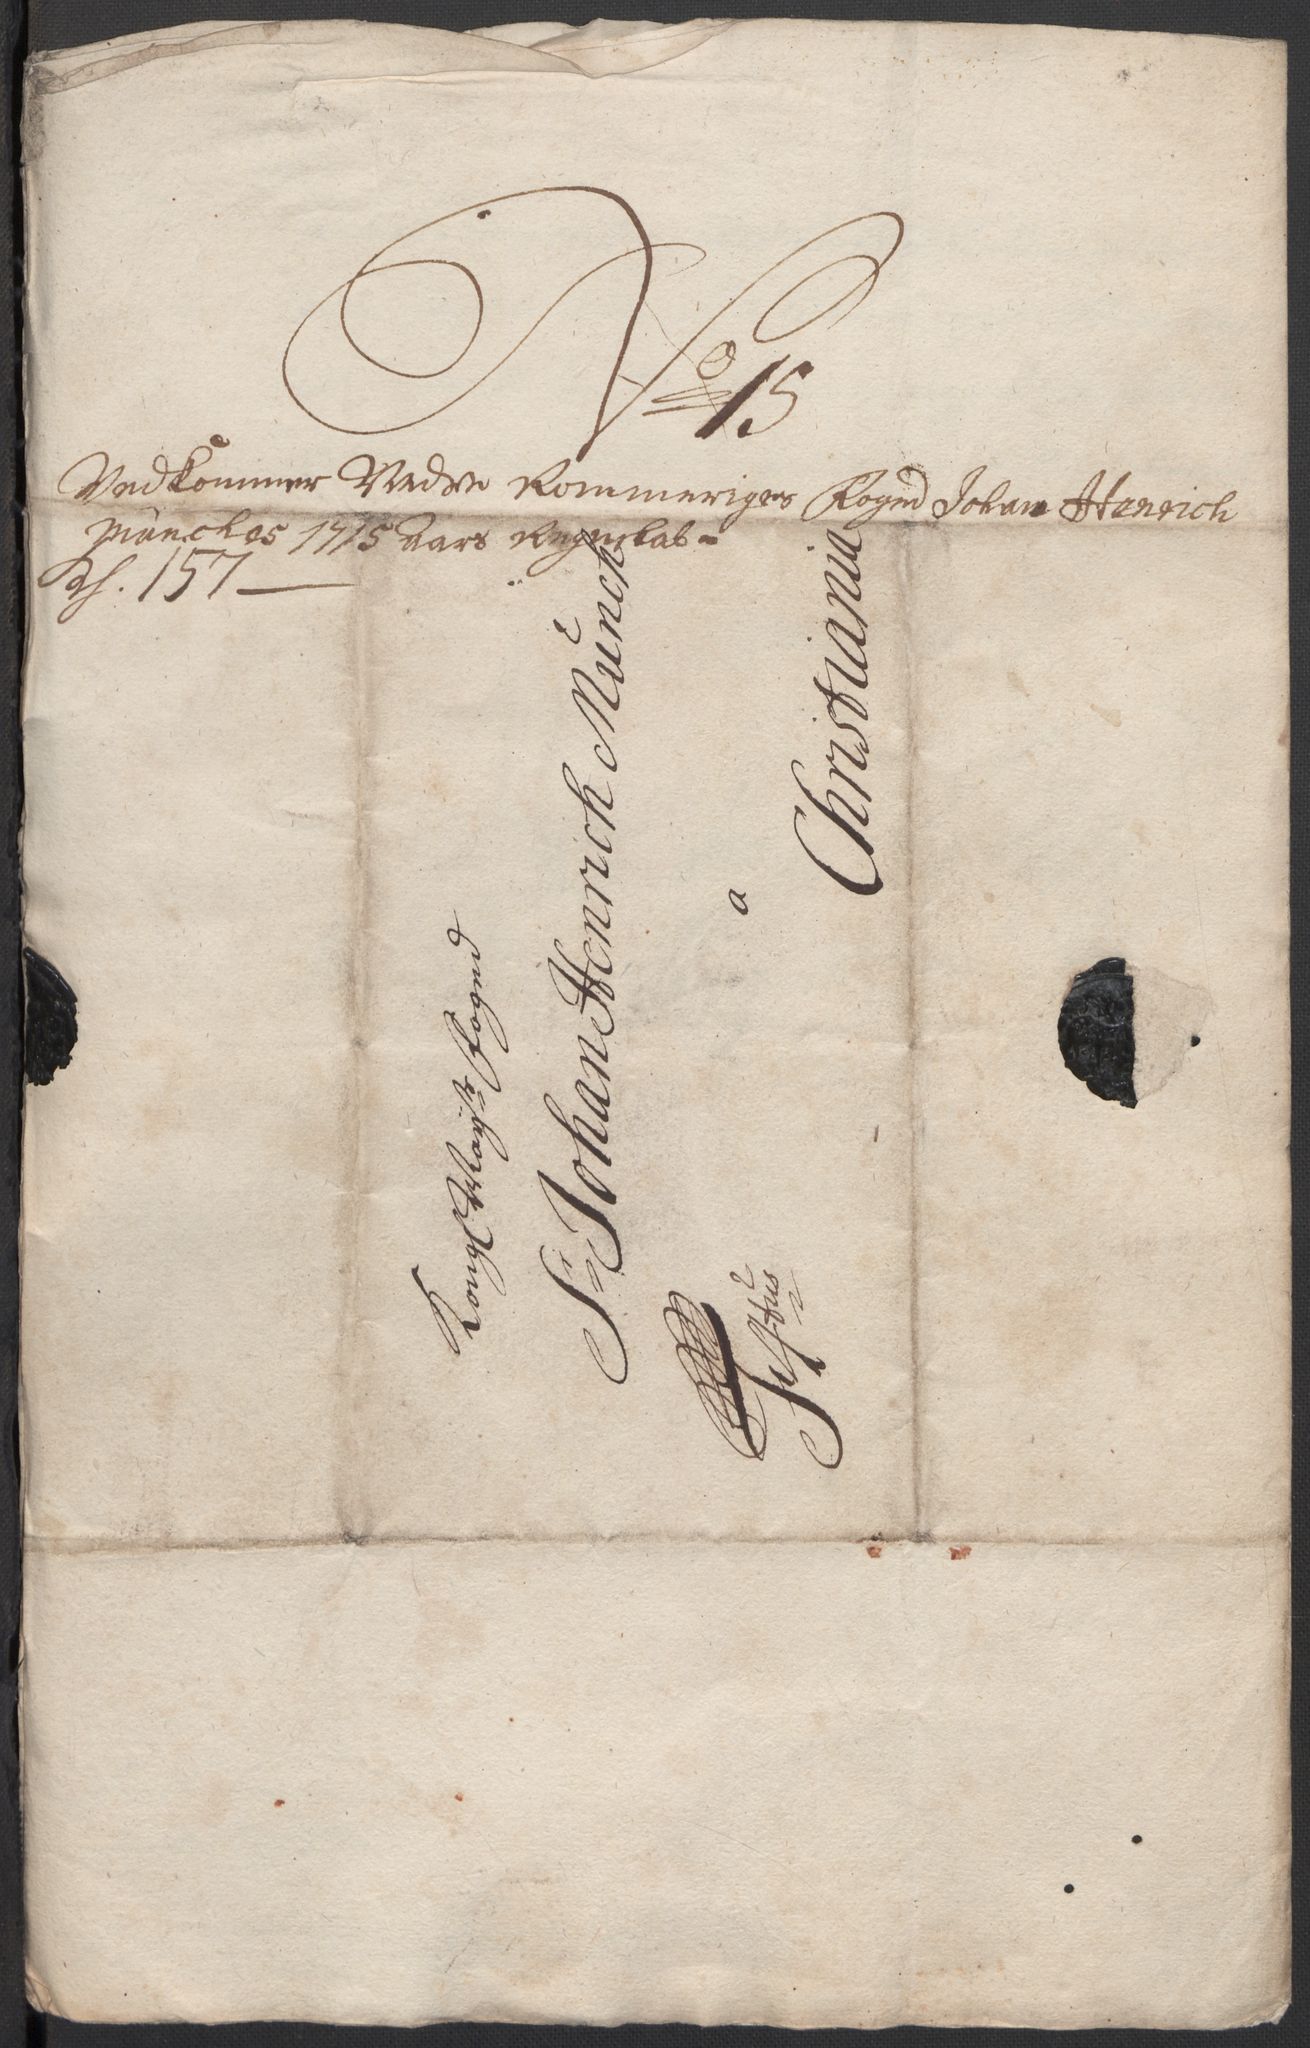 No 15
Vedkommer Nedre Rommeriges Fogd Johan Henrich
Münches 1715 Aars Regnskab
157
Kongl Mayts Fogd
Sr Johan Henrich Münch
a
Christiania